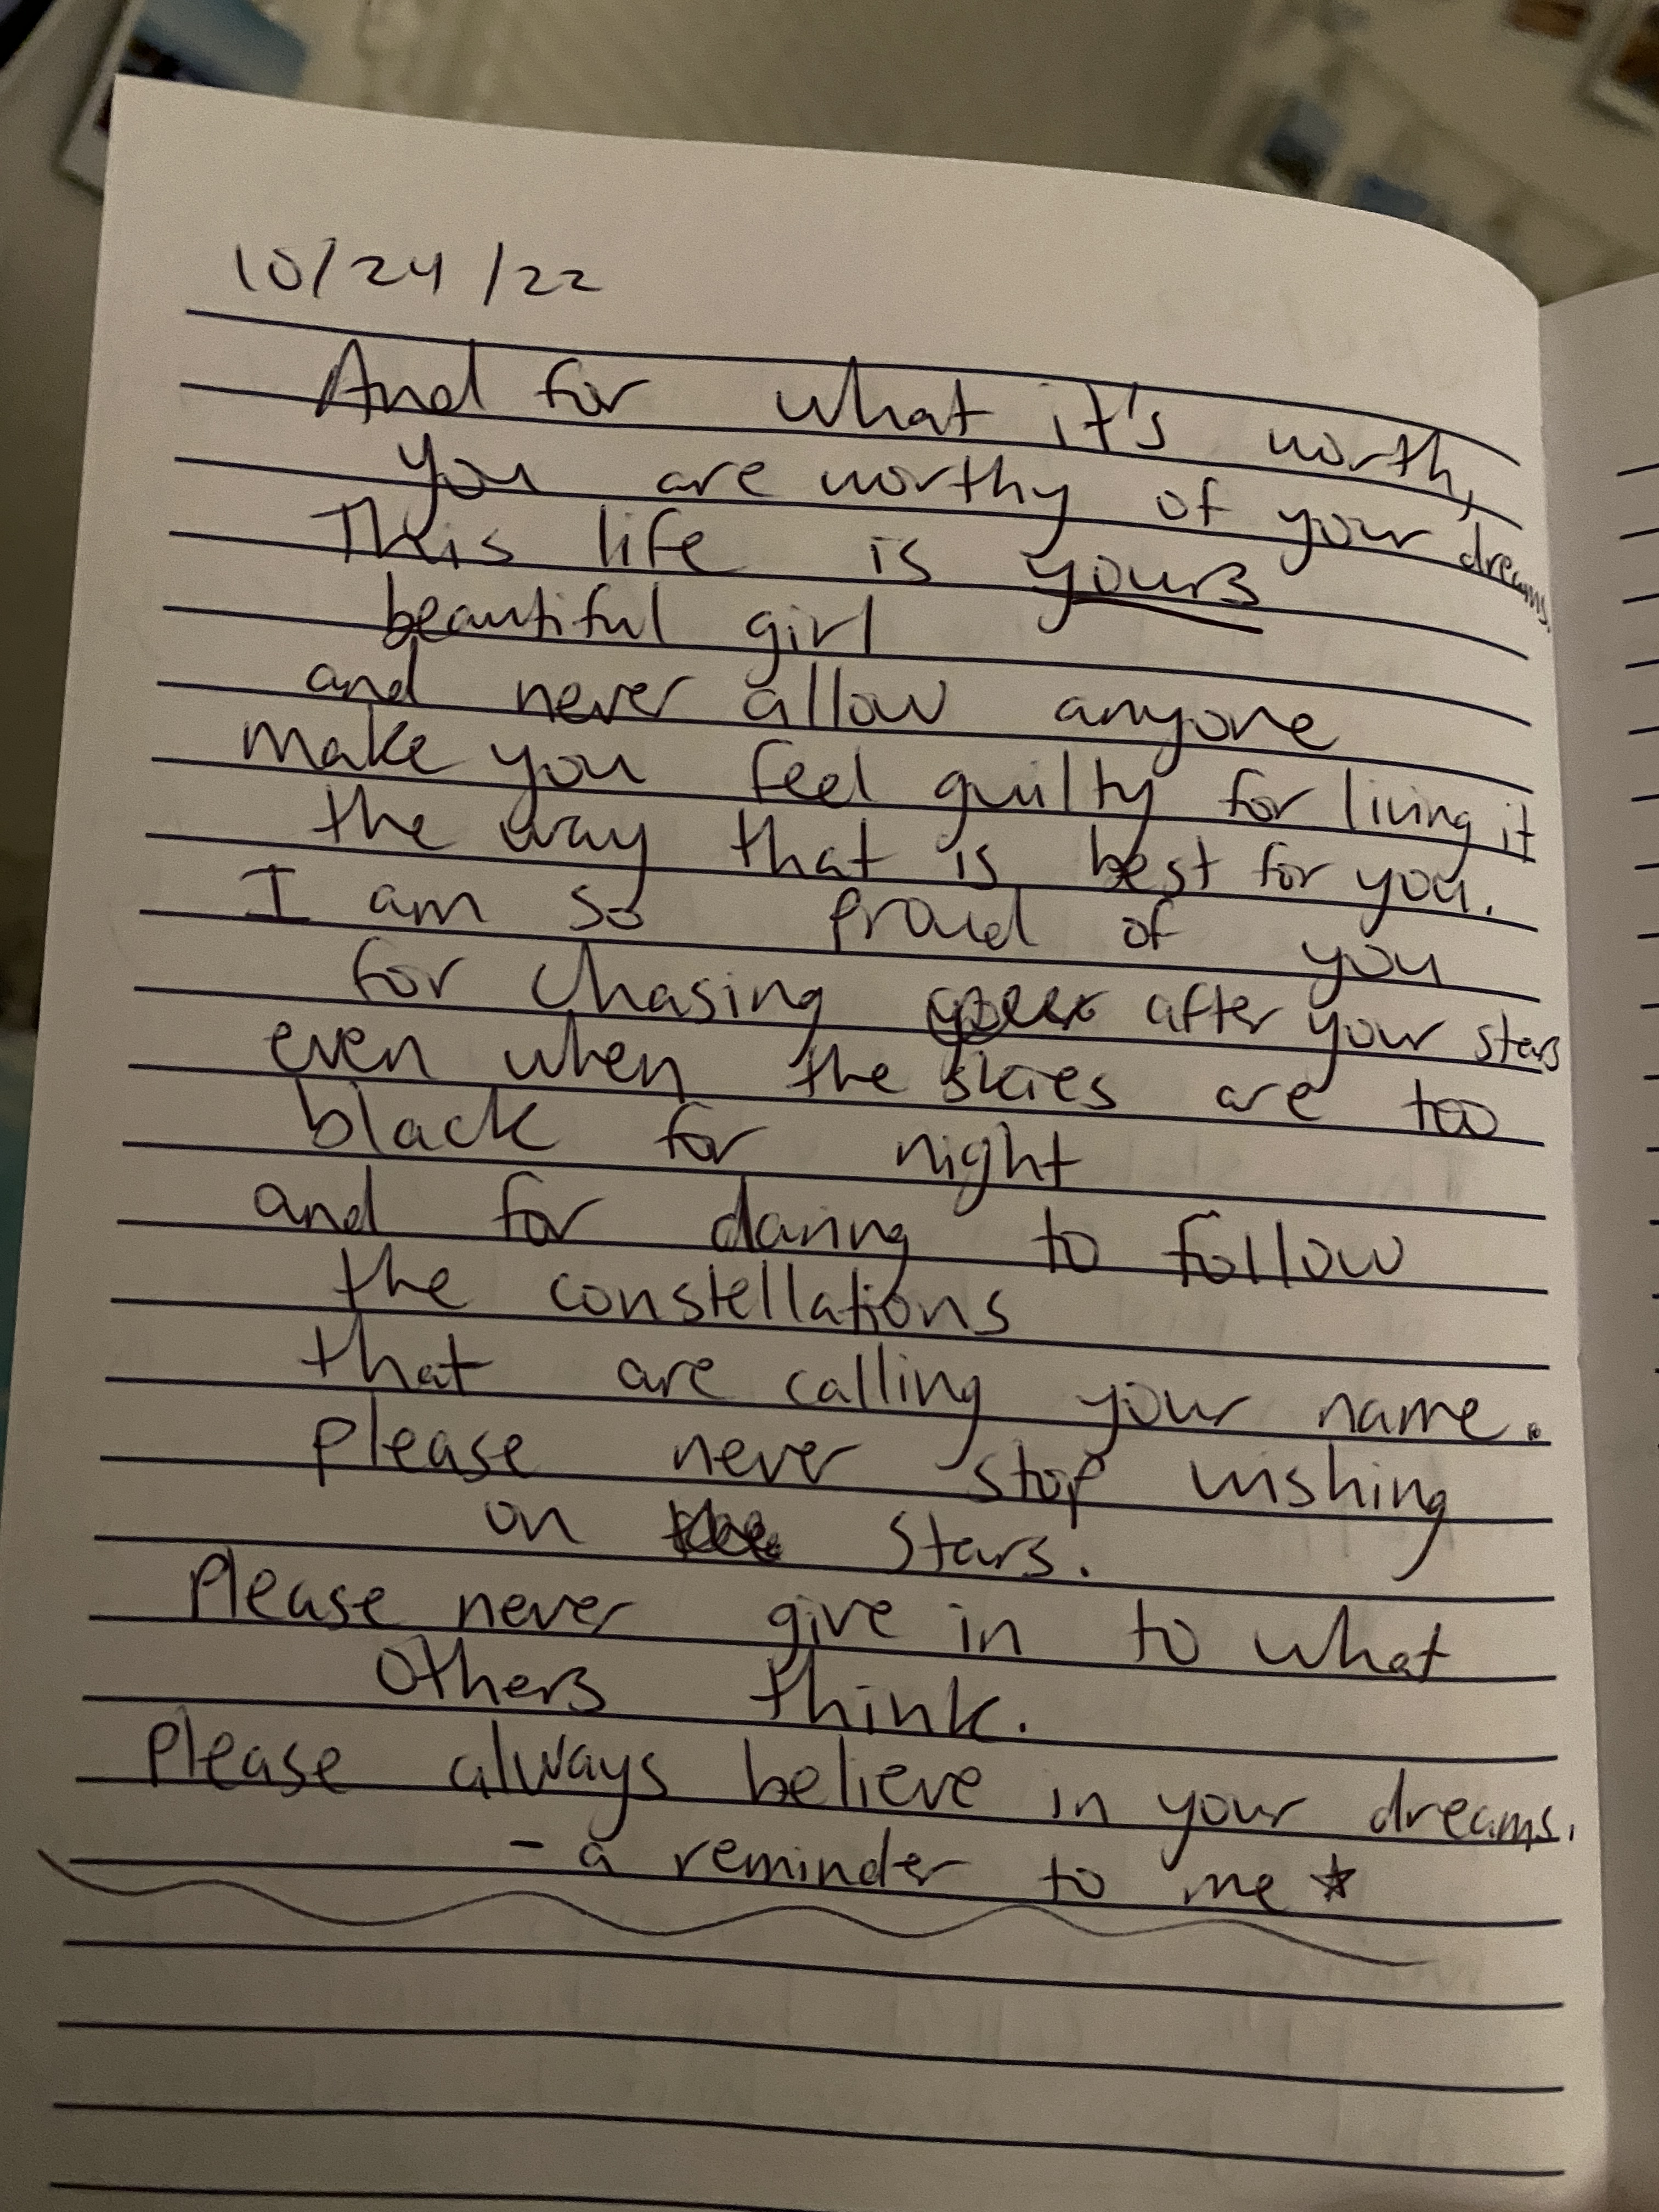 10/24/22
And for what it's worth,
you are worthy of your dreams.
This life is yours
beautiful girl
and never allow anyone
make you feel guilty for living it
the way that is best for you.
I am so proud of you
for chasing after your stars
even when the skies are too
black for night
and for daring to follow
the constellations
that are calling your name.
please never stop wishing
on stars.
Please never give in to what
others think.
Please always believe in your dreams.
- a reminder to me ☆